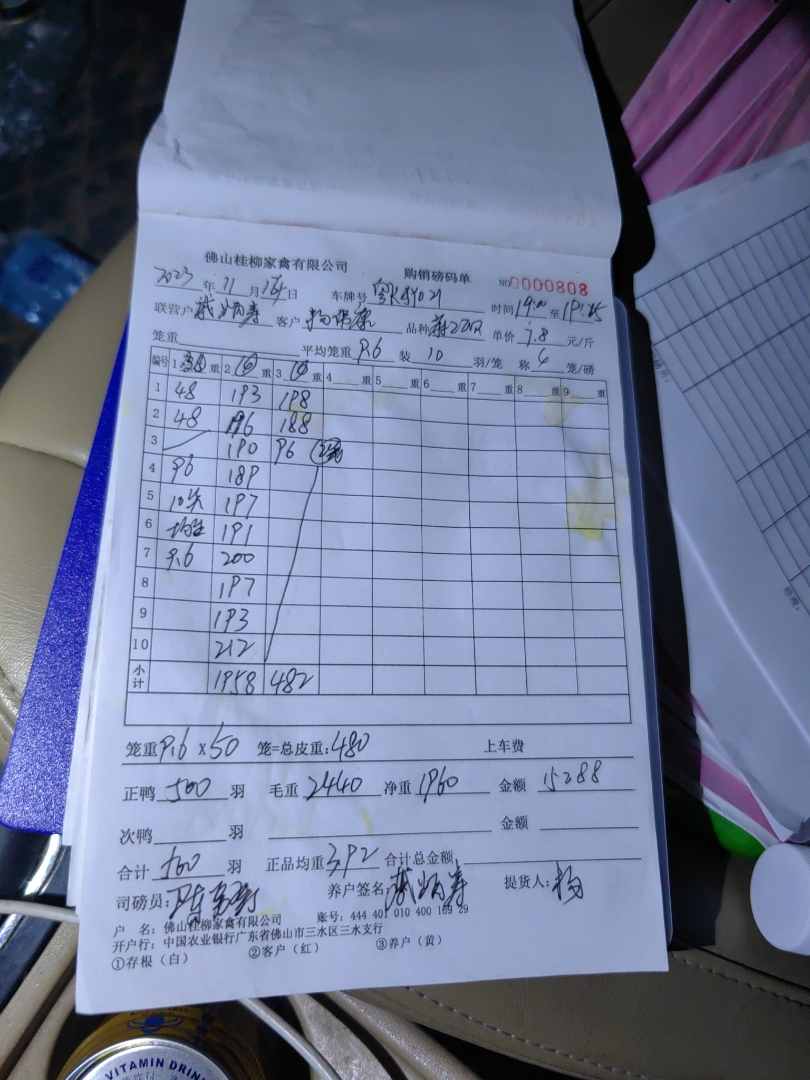 佛山桂柳家禽有限公司 购销磅码单 NO0000808
2023年11月16日 车牌号 时间19:00至19:25
联营户 客户 品种 单价7.8元/斤
笼重 平均笼重9.6 装10羽/笼 称4笼/磅
编号 1 重 2 重 3 重 4 重 5 重 6 重 7 重 8 重 9 重
1 48 193 198
2 48 196 188
3 190 96
4 96 189
5 10 197
6 191
7 9.6 200
8 197
9 193
10 212
小计 1958 482
笼重9.6 x 50 笼=总皮重:480 上车费
正鸭500羽 毛重2440 净重1960 金额15288
次鸭 羽 金额
合计500羽 正品均重3.92 合计总金额
司磅员:陈 养户签名: 提货人:杨
户 名:佛山桂柳家禽有限公司 账号:444 401 010 400 169 29
开户行:中国农业银行广东省佛山市三水区三水支行
①存根(白) ②客户(红) ③养户(黄)
VITAMIN DRIN